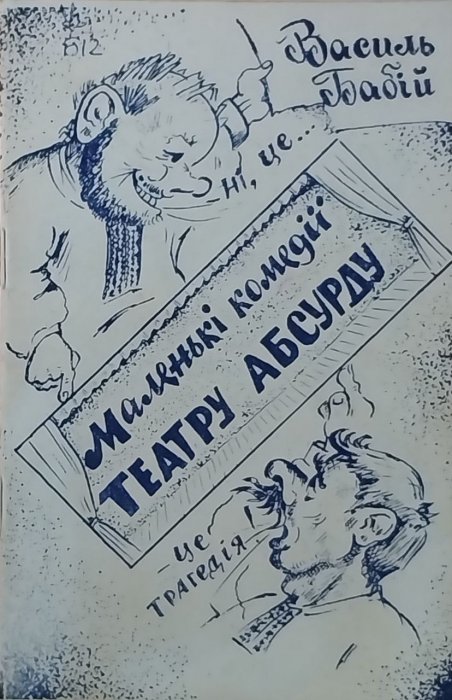 Б12
Василь
Бабій
Ні, це...
Маленькі комедії
ТЕАТРУ АБСУРДУ
— це
трагедія